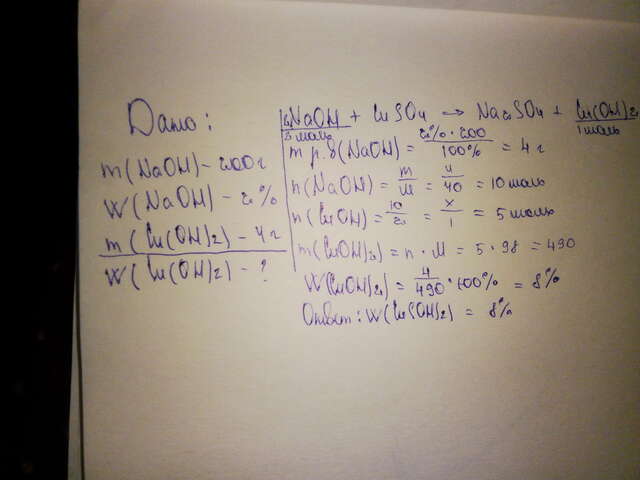 Дано:
m(NaOH) - 200г
W(NaOH) - 2%
m(Cu(OH)2) - 4г
W(Cu(OH)2) - ?
2NaOH + CuSO4 → Na2SO4 + Cu(OH)2
2 моль 1 моль
m р.в(NaOH) = 2% · 200 / 100% = 4 г
n(NaOH) = m/M = 4/40 = 10 моль
n(CuOH) = 10/2 = x/1 = 5 моль
m(CuOH)2) = n · M = 5 · 98 = 490
W(CuOH)2) = 4/490 · 100% = 8%
Ответ: W(Cu(OH)2) = 8%